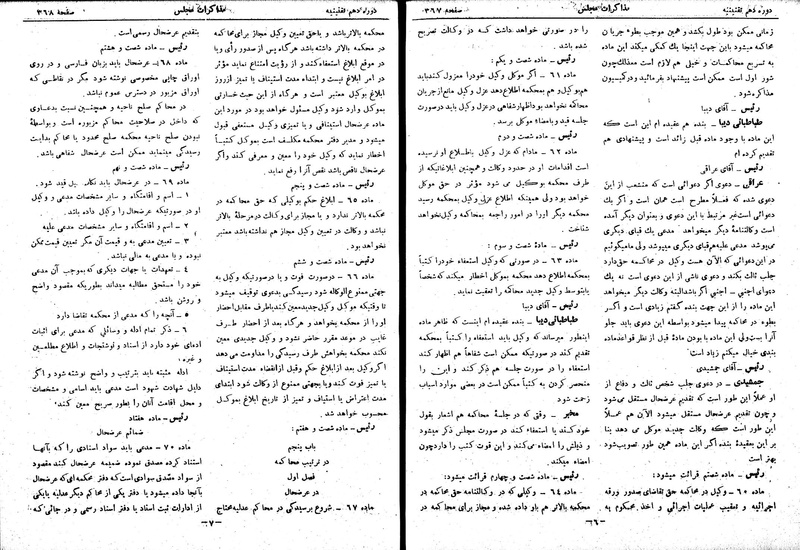 دوره دهم تقنینیه
مذاکرات مجلس
صفحه ۳۶۷
زمانی ممکن بود طول بکشد و همین موجب بطوء جریان
محاکمه میشود باین جهت اینجا یك کمکی میکند این ماده
به تسریع محاکمات و خیلی هم لازم است معذلك چون
شور اول است ممکن است پیشنهاد بفرمائید و در کمیسیون
مذاکره شود.
رئیس – آقای دیبا
طباطبائی دیبا – بنده هم عقیده ام این است که
این ماده با وجود ماده قبل زائد است و پیشنهادی هم
تقدیم کرده ام
رئیس – آقای عراقی
عراقی – دعوی اگر دعوائی است که منشعب از این
دعوی شده که فعلاً مطرح است همان است و اگر یك
دعوائی است غیر مرتبط با این دعوی و بعنوان دیگر آمده
است وکالتنامهٔ دیگر میخواهد مدعی یك قبای دیگری
می‌پوشد مدعی علیه هم قبای دیگری میپوشد ولی ما میگوئیم
در این دعوائی که الآن هست وکیل در محاکمه حق دارد
جلب ثالث بکند و دعوی ناشی از این دعوی است نه یك
دعوای اجنبی ـ اجنبی اگر باشد البته وکالت دیگر میخواهد
این ماده را از این جهت بنده گفتم زیادی است و اگر
بطوء در محاکمه پیدا میشود بواسطه این دعوی باید جلو
آنرا بست ولی این ماده با بودن مادهٔ قبل از نظر قواعد ماده
بندی خیال میکنم زیاد است
رئیس – آقای جمشیدی
جمشیدی – در دعوی جلب شخص ثالث و دفاع از
او عملاً این طور است که تقدیم عرضحال مستقل می‌شود
و چون تقدیم عرضحال مستقل میشود الآن هم عملاً
این طور است که وکالت جدید موکل می دهد بنا
بر این بعقیدهٔ بنده اگر این ماده همین طور تصویب شود
بهتر است
رئیس – ماده شصتم قرائت میشود:
ماده ۶۰ – وکیل در محاکمه حق تقاضای صدور ورقه
اجرائیه و تعقیب عملیات اجرائی و اخذ محکوم به
را در صورتی خواهد داشت که در وکالت تصریح
شده باشد.
رئیس – ماده شصت و یکم:
ماده ۶۱ – اگر موکل وکیل خود را معزول کند باید
هم بوکیل و هم بمحکمه اطلاع دهد عزل وکیل مانع از جریان
محاکمه نخواهد بود اظهار شفاهی در عزل وکیل باید در صورت
جلسه قید و بامضاء موکل برسد.
رئیس – ماده شصت و دوم
ماده ۶۲ – مادام که عزل وکیل باطلاع او نرسیده
است اقدامات او در حدود وکالت و همچنین ابلاغاتیکه از
طرف محکمه بوکیل می شود مؤثر در حق موکل
خواهد بود ولی همینکه اطلاع عزل وکیل بمحکمه رسید
محکمه دیگر او را در امور راجعه بمحاکمه وکیل نخواهد
شناخت.
رئیس – مادهٔ شصت و سوم:
ماده ۶۳ – در صورتی که وکیل استعفاء خود را کتباً
بمحکمه اطلاع دهد محکمه بموکل اخطار میکند که شخصاً
یا بتوسط وکیل جدید محاکمه را تعقیب نماید.
رئیس – آقای دیبا
طباطبائی دیبا – بنده عقیده ام اینست که ظاهر ماده
اینطور میرساند که وکیل باید استعفاء را کتباً بمحکمه
تقدیم کند در صورتیکه ممکن است شفاهاً هم اظهار کند
استعفاء را در صورت جلسه هم ذکر کند و این را
منحصر کردن به کتباً ممکن است در بعضی موارد اسباب
زحمت شود
مخبر – وقتی که در جلسهٔ محاکمه هم اشعار بقول
خود کند با استعفاء کند در صورت مجلس ذکر میشود
و ذیلش را امضاء می‌کنند و این قوت کتب را دارد چون
امضاء میکند.
رئیس – ماده شصت و چهارم قرائت میشود:
ماده ۶۴ – وکیلی که در وکالتنامه حق محاکمه در
محکمه بالاتر هم باو داده شده و مجاز برای محاکمه در
–۶–
دوره دهم تقنینیه
مذاکرات مجلس
صفحه ۳۶۸
محکمه بالاتر باشد و یا حق تعیین وکیل مجاز برای محاکمه
در محکمه بالاتر داشته باشد هر گاه پس از صدور رأی و یا
در موقع ابلاغ استعفاء کند و از رؤیت امتناع نماید مؤثر
در امر ابلاغ نیست و ابتداء مدت استیناف یا تمیز از روز
ابلاغ بوکیل معتبر است و هر گاه از این حیث خسارتی
بموکل وارد شود وکیل مسئول خواهد بود در مورد این
ماده عرضحال استینافی و یا تمیزی وکیل مستعفی قبول
میشود و مدیر دفتر محکمه مکلف است بموکل کتبباً
اخطار نماید که وکیل خود را معین و معرفی کند و اگر
عرضحال ناقص باشد نقص آنرا رفع نماید.
رئیس – ماده شصت و پنجم
ماده ۶۵ – ابلاغ حکم بوکیلی که حق محاکمه در
محکمه بالاتر ندارد و یا مجاز برای وکالت در مرحلهٔ بالاتر
نباشد و وکالت در تعیین وکیل مجاز هم نداشته باشد معتبر
نخواهد بود.
رئیس – ماده شصت و ششم
ماده ۶۶ – در صورت فوت و یا در صورتیکه وکیل به
جهتی ممنوع الوکاله شود رسیدگی بدعوی توقیف میشود
تا وقتیکه موکل وکیل جدید معین کند یا طرف مقابل احضار
او را از محکمه بخواهد و هرگاه بعد از احضار طرف
غایب در موعد مقرر حاضر نشود و وکیل جدیدی معین
نکند محکمه بخواهش طرف رسیدگی را مداومت می دهد
اگر وکیل بعد از ابلاغ حکم و قبل از انقضاء مدت استیناف
یا تمیز فوت کند و یا بجهتی ممنوع از وکالت شود ابتدای
مدت اعتراض یا استیناف و تمیز از تاریخ ابلاغ بموکل
محسوب خواهد شد.
رئیس – ماده شصت و هفتم:
باب پنجم
در ترتیب محاکمه
فصل اول
در عرضحال
ماده ۶۷ – شروع برسیدگی در محاکم عدلیه محتاج
بتقدیم عرضحال رسمی است.
رئیس – ماده شصت و هشتم
ماده ۶۸ – عرضحال باید بزبان فارسی و در روی
اوراق چاپی مخصوصی نوشته شود مگر در نقاطی که
اوراق مزبور در دسترس عموم نباشد.
در محاکم صلح ناحیه و همچنین نسبت بدعاوی
که داخل در صلاحیت محاکم مزبوره است و بواسطهٔ
نبودن صلح ناحیه محکمه صلح محدود یا محاکم بدایت
رسیدگی مینماید ممکن است عرضحال شفاهی باشد.
رئیس – ماده شصت و نهم
ماده ۶۹ – در عرضحال باید نکات ذیل قید شود.
۱ – اسم و اقامتگاه و سایر مشخصات مدعی و وکیل
او در صورتیکه عرضحال را وکیل داده باشد.
۲ – اسم و اقامتگاه و سایر مشخصات مدعی علیه
۳ – تعیین مدعی به و قیمت آن مگر تعیین قیمت ممکن
نبوده و یا مدعی به مالی نباشد.
۴ – تعهدات یا جهات دیگری که بموجب آن مدعی
خود را مستحق مطالبه میداند بطوریکه مقصود واضح
و روشن باشد.
۵ – آنچه را که مدعی از محکمه تقاضا دارد
۶ – ذکر تمام ادله و وسائلی که مدعی برای اثبات
ادعای خود دارد از اسناد و نوشتجات و اطلاع مطلعین
و غیره:
ادله مثبته باید بترتیب و واضح نوشته شود و اگر
دلیل شهادت شهود است مدعی باید اسامی و مشخصات
و محل اقامت آنان را بطور صریح معین کند.
رئیس – ماده هفتاد
ضمائم عرضحال
ماده ۷۰ – مدعی باید سواد اسنادی را که بآنها
استناد کرده مصدق نموده ضمیمه عرضحال کند مقصود
از سواد مصدق سوادی است که دفتر محکمه ای که عرضحال
بآنجا داده میشود یا دفتر یکی از محاکم دیگر عدلیه یا یکی
از ادارات ثبت اسناد یا دفتر اسناد رسمی و در جائی که
–۷–